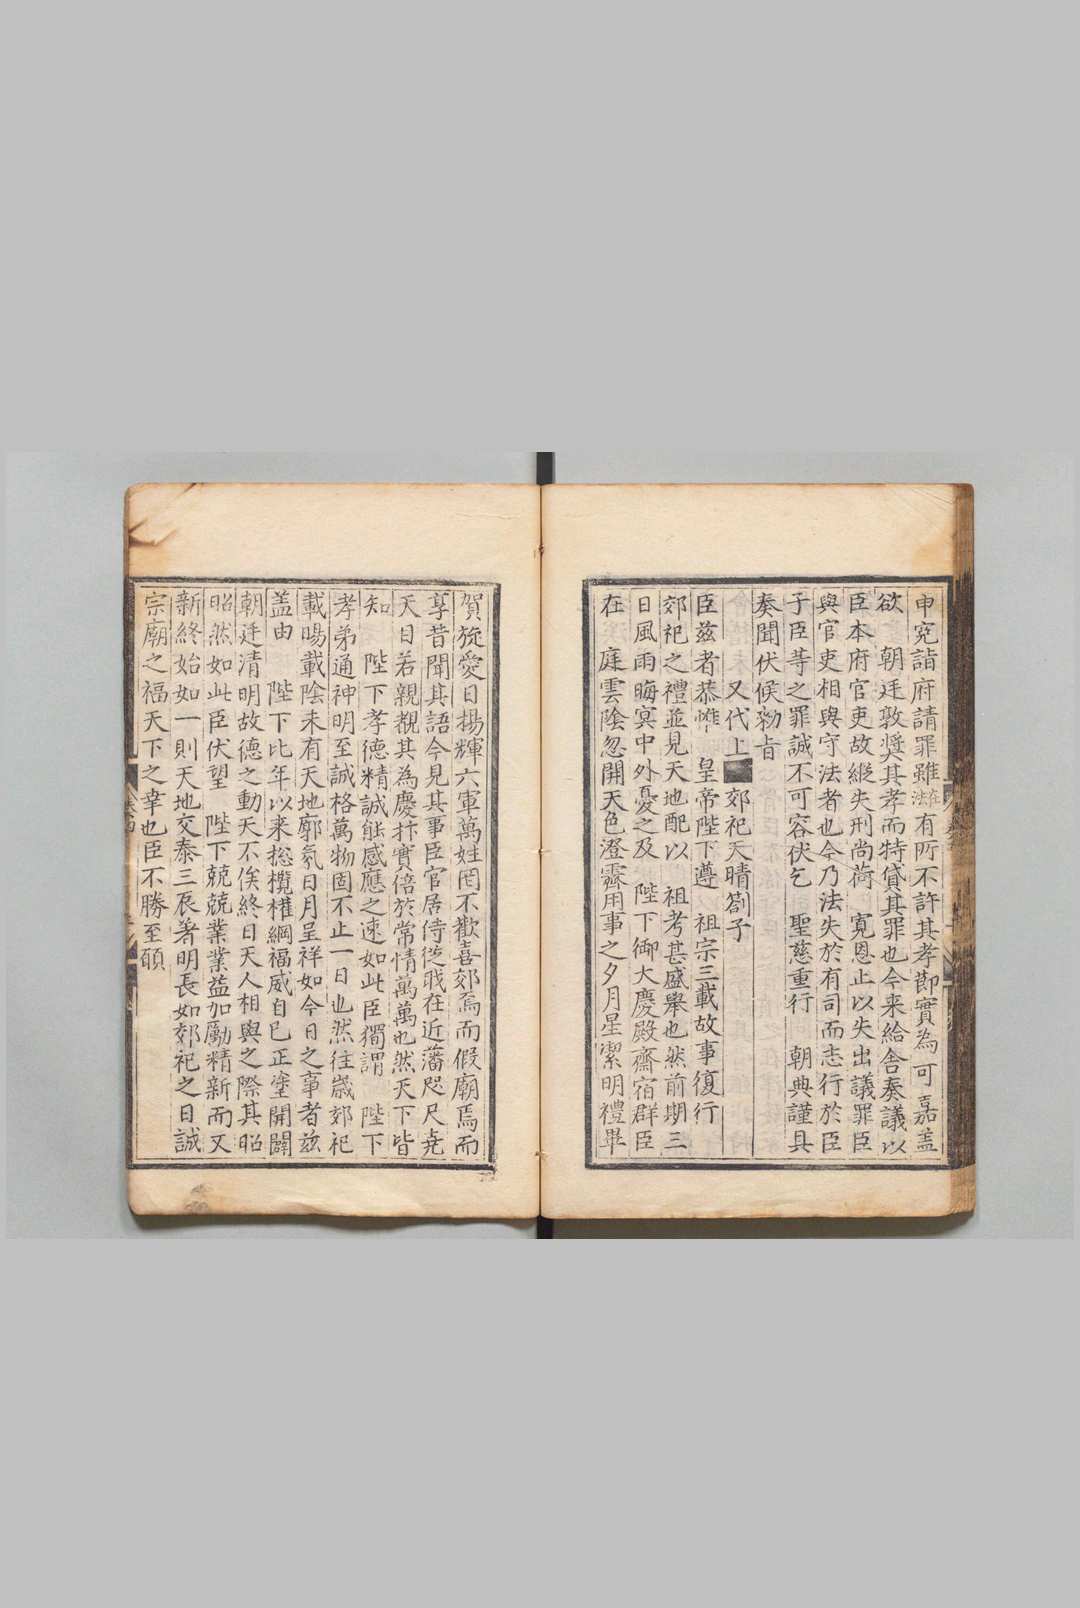 申寃詣府請罪雖在法有所不許其孝節實為可嘉盖
欲 朝廷敦奬其孝而特貸其罪也今来給舎奏議以
臣本府官吏故縱失刑尚荷 寛恩止以失出議罪臣
與官吏相與守法者也今乃法失於有司而志行於臣
子臣䓁之罪誠不可容伏乞 聖慈重行 朝典謹具
奏聞伏候勑旨
又代上 郊祀天晴劄子
臣兹者恭惟 皇帝陛下遵 祖宗三載故事復行
郊祀之禮並見天地配以 祖考甚盛舉也然前期三
日風雨晦冥中外憂之及 陛下御大慶殿齋宿群臣
在 庭雲陰忽開天色澄霽用事之夕月星㓗明禮畢
賀旋愛日揚輝六軍萬姓罔不歡喜郊焉而假廟焉而
享昔聞其語今見其事臣官居侍從職在近藩咫尺尭
天日若親覩其為慶抃實倍於常情萬萬也然天下皆
知 陛下孝德精誠能感應之速如此臣獨謂 陛下
孝弟通神明至誠格萬物固不止一日也然往歲郊祀
載暘載陰未有天地廓氛日月呈祥如今日之事者兹
盖由 陛下比年以来揔攬權綱福威自己正塗開闢
朝廷清明故德之動天不俟終日天人相與之際其昭
昭然如此臣伏望 陛下兢兢業業益加勵精新而又
新終始如一則天地交泰三辰著明長如郊祀之日誠
宗廟之福天下之幸也臣不勝至願